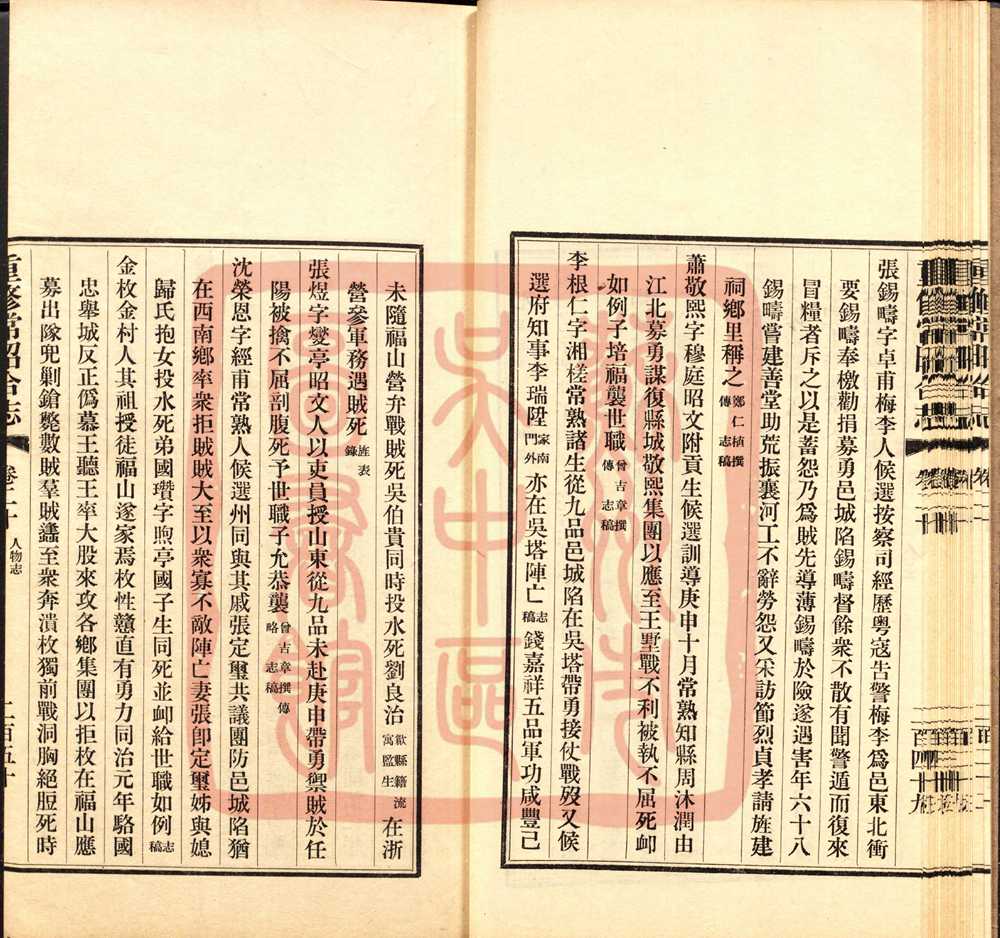 張錫疇字卓甫梅李人候選按察司經歷粵寇告警梅李爲邑東北衝
要錫疇奉檄勸捐募勇邑城陷錫疇督餘衆不散有聞警遁而復來
冒糧者斥之以是蓄怨乃爲賊先導薄錫疇於險遂遇害年六十八
錫疇嘗建善堂助荒振襄河工不辭勞怨又采訪節烈貞孝請旌建
祠鄉里稱之鄭仁植撰傳志稿
蕭敬熙字穆庭昭文附貢生候選訓導庚申十月常熟知縣周沐潤由
江北募勇謀復縣城敬熙集團以應至王墅戰不利被執不屈死卹
如例子培福襲世職曾吉章撰傳志稿
李根仁字湘槎常熟諸生從九品邑城陷在吳塔帶勇接仗戰歿又候
選府知事李瑞陞家南門外亦在吳塔陣亡志稿錢嘉祥五品軍功咸豐己
未隨福山營弁戰賊死吳伯貴同時投水死劉良治歙縣籍流寓監生在浙
營參軍務遇賊死旌表錄
張煜字燮亭昭文人以吏員授山東從九品未赴庚申帶勇禦賊於任
陽被擒不屈剖腹死予世職子允恭襲曾吉章撰傳略志稿
沈榮恩字經甫常熟人候選州同與其戚張定璽共議團防邑城陷猶
在西南鄉率衆拒賊賊大至以衆寡不敵陣亡妻張卽定璽姊與媳
歸氏抱女投水死弟國瓚字煦亭國子生同死並卹給世職如例志稿
金枚金村人其祖授徒福山遂家焉枚性戇直有勇力同治元年駱國
忠舉城反正僞慕王聽王率大股來攻各鄉集團以拒枚在福山應
募出隊兜剿鎗斃數賊羣賊蠭至衆奔潰枚獨前戰洞胸絕脰死時
重修常昭合志
卷二十
人物志
二百五十